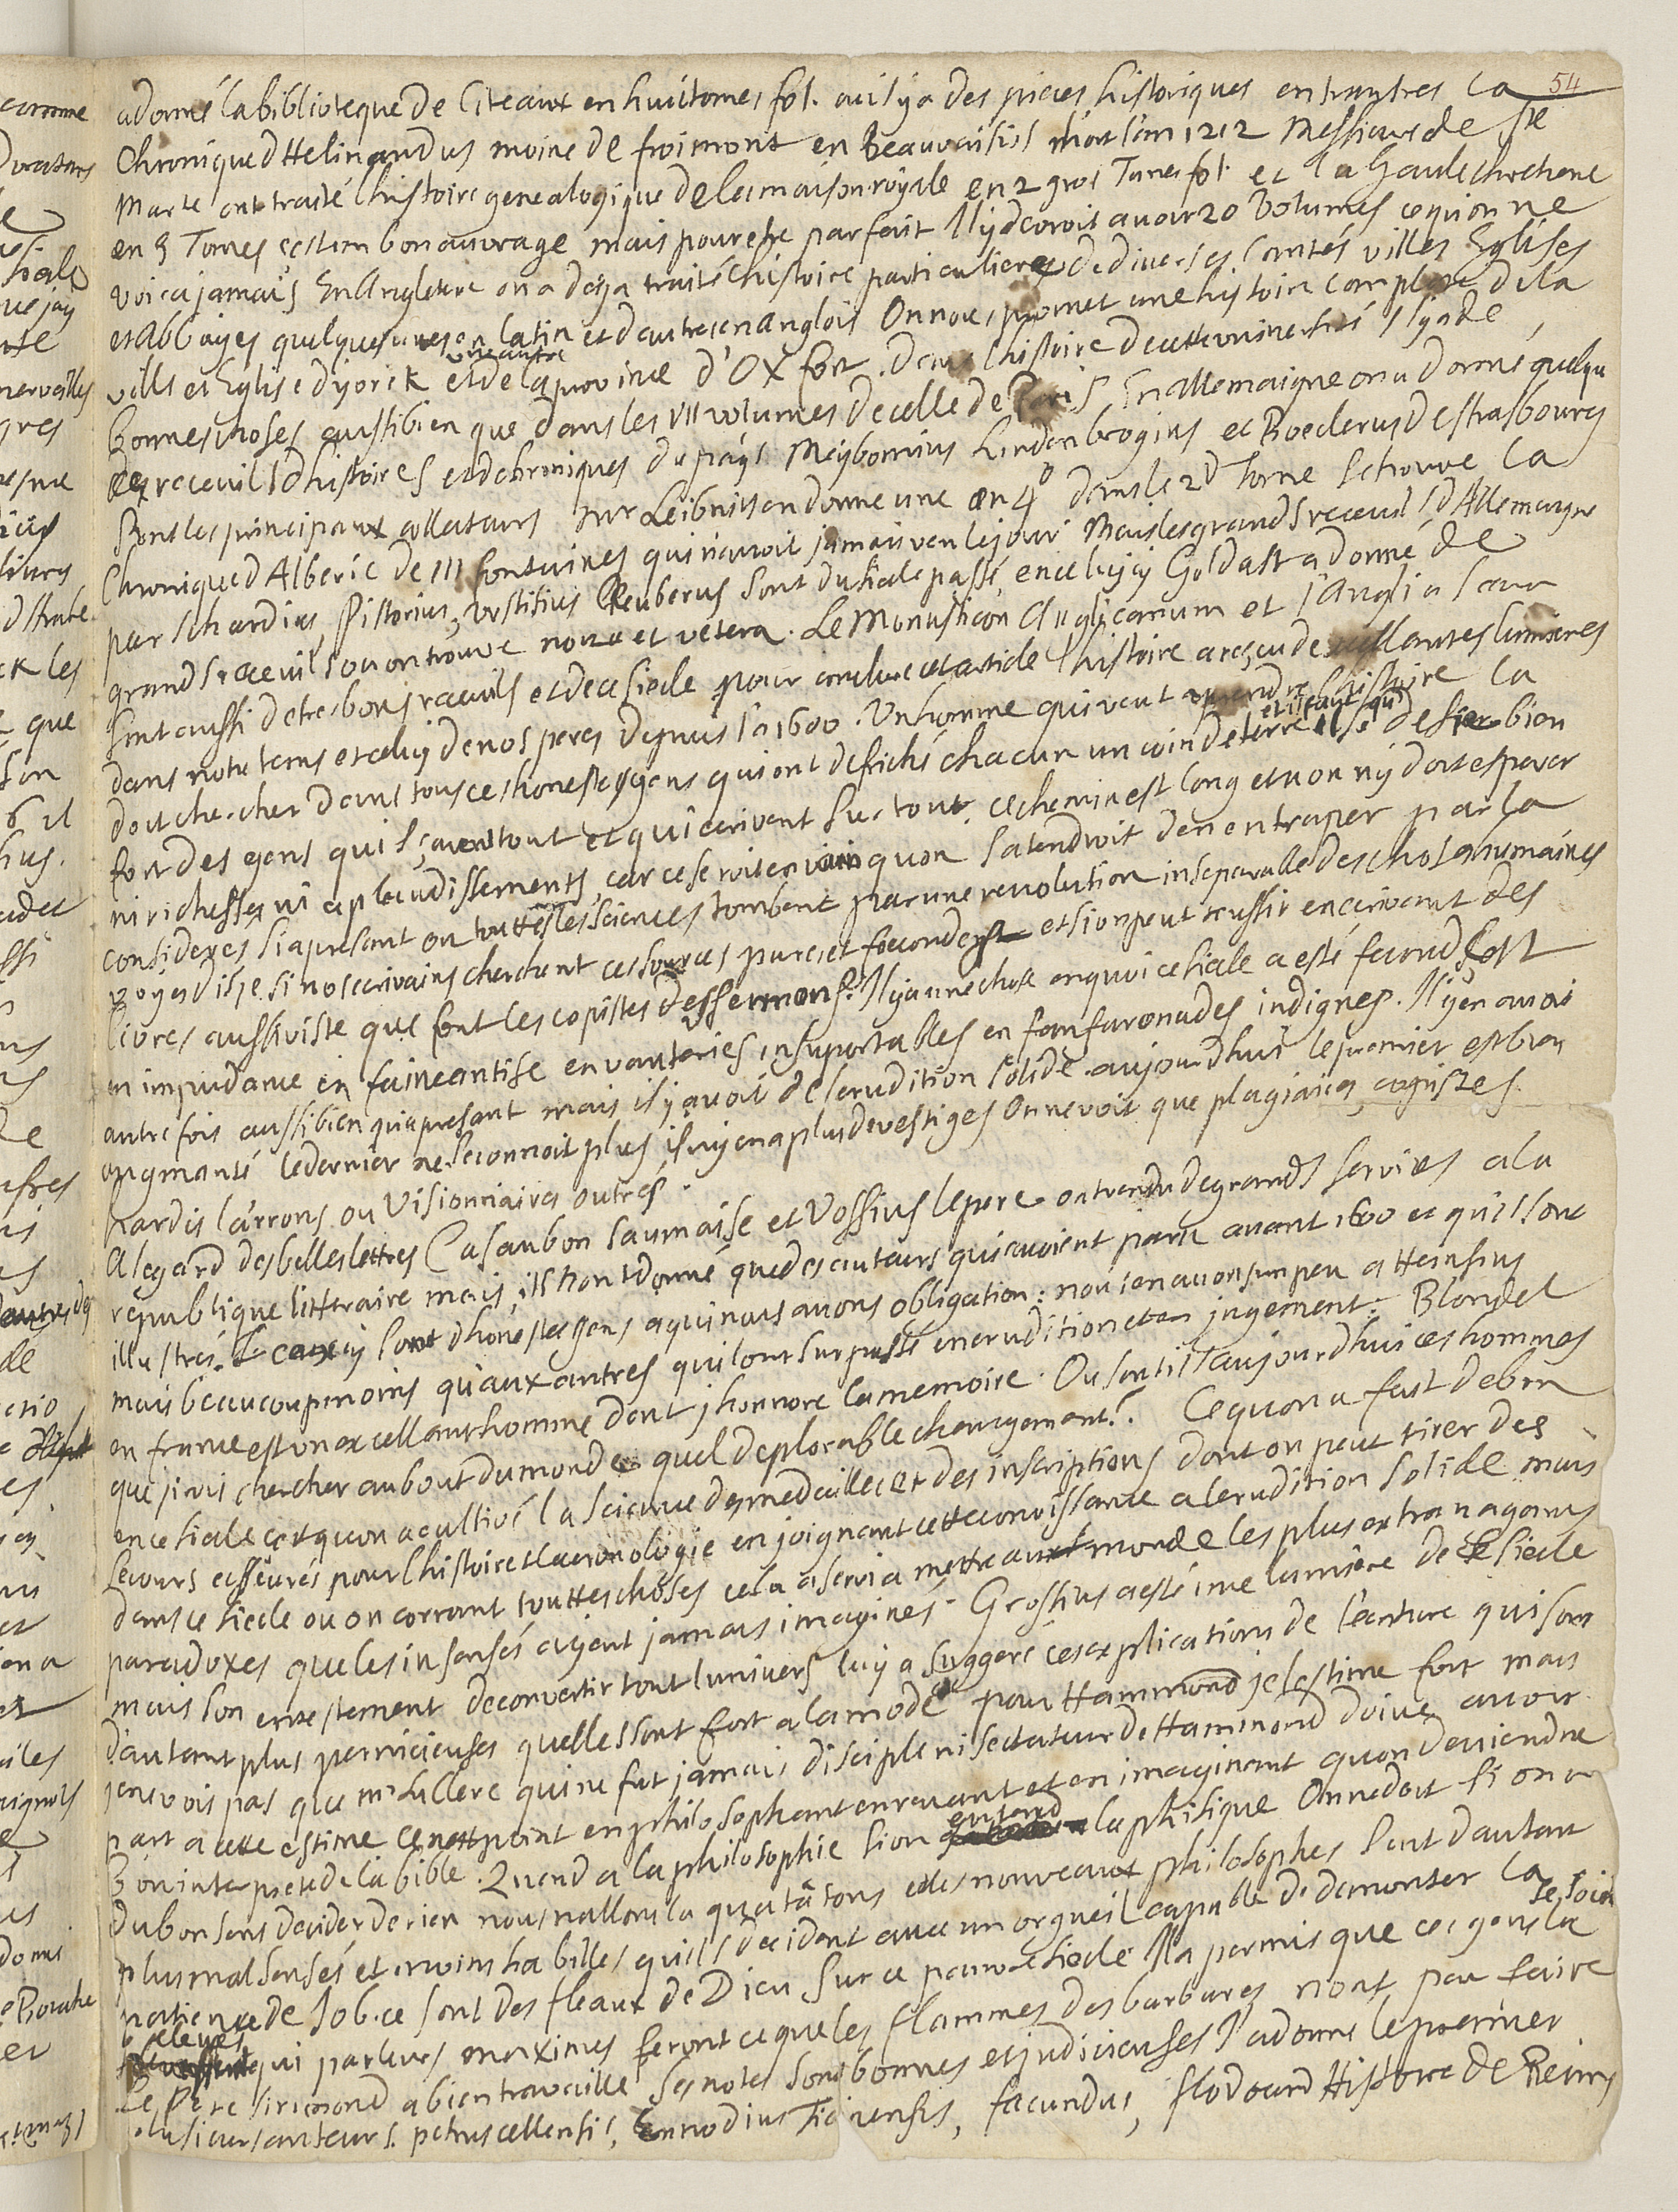 54
adonné la biblioteque de Citeaux en huit tomes fol. ou il y a des pieces historiques entrautres la
Chronique d'Helinandus moine de froimont en Beauvaisis mort l'an 1212 Messieurs de Ste
Marte ont traité l'histoire genealogique de la maison royale en 2 gros Tomes fol. et la Gaule chretiene
en 3 Tomes c'est un bon ouvrage mais pour estre parfait Il y devroit avoir 20 Volumes ce qu'on ne
voira jamais En Angleterre on a deja traité l'histoire particuliere de diverses Comtés villes Eglises
et Abbayes quelques unes en latin et d'autres en anglois On nous promet une histoire complete de la
ville et Eglise d'yorck et une autre de la province d'Oxfort. dans l'histoire de cette université Il y a de
bonnes choses aussi bien que dans les VII volumes de celle de Paris En allemaigne on a donné quelques
receuils d'histoires et de chroniques du pays Meybomius Lindenbrogius et Boeclerus de strasbourg
sont les principaux collecteurs Mr Leibnits en donne une en 4° dans le 2d Tome se trouve la
Chronique d'Alberic de III fontaines qui n'avoit jamais veu le jour Mais les grands receuils d'Allemaigne
par schardius, Pistorius, urstisius Reuberus sont du siecle passé, en celuy cy Goldast a donné de
grands receuils ou on trouve nova et vetera. Le Monasticon Anglicanum et l'Anglia sacra
sont aussi de tres bons receuils et de ce siecle pour conclure cet article l'histoire a reçeu de excellantes lumieres
dans notre tems et celuy de nos peres depuis l'a 1600. Un homme qui veut aprendre l'histoire la
doit chercher dans tous ces honestes gens qui ont defriché chacun un coin de terre et il faut qu'il se defie bien
fort des gens qui sçavent tout et qui ecrivent sur tout. ce chemin est long et on n'y doit esperer
ni richesses ni aplaudissements, car ce seroit en vain qu'on s'atendroit d'en entraper par la
consideres si apresant ou touttes les sciences tombent par une revolution inseparable des choses humaines
voyes dis je si nos ecrivains cherchent ces sources pures et fecondes et si on peut reussir en ecrivant des
livres aussi viste que font les copistes des sermons? Il y a une chose en quoi ce siecle a esté fecond c'est
en impudance en faineantise en vanteries insuportables en fanfaronades indignes. Il y en avoit
autrefois aussi bien qu'apresant mais il y avoit de l'erudition solide. aujourdhui le premier est bien
augmanté le dernier ne se connoit plus, il n'y en a plus de vestiges On ne voit que plagiaires, copistes
hardis larrons ou visionniaires outrés.
A l'egard des belles lettres Casaubon Saumaise et Vossius le pere ont rendu de grands services a la
republique litteraire mais ils n'ont donné que des auteurs qui avoient paru avant 1600 et qu'ils ont
illustrés. ceux cy sont d'honestes gens a qui nous avons obligation: nous en avons un peu a Heinsius
mais beaucoup moins qu'aux autres qui l'ont surpassé en erudition et en jugement. Blondel
en france est un excellant homme dont j'honnore la memoire. Ou sont ils aujourd'hui ces hommes
que j'irois chercher au bout du monde quel deplorable changemant? Ce qu'on a fait de bon
en ce siecle c'est qu'on a cultivé la science des medailles et des inscriptions dont on peut tirer des
secours asseurés pour l'histoire et la cronologie en joignant cette conoissance a l'erudition solide mais
dans ce siecle ou on corrant touttes choses cela a servi a mettre au monde les plus extravagants
paradoxes que les insensés ayent jamais imaginés. Grostius a esté une lumiere de ce siecle
mais son entestement de convertir tout l'univers luy a suggeré ces explications de l'ecriture qui sont
d'autant plus pernicieuses qu'elles sont fort a la mode pour Hammond je l'estime fort mais
je ne vois pas que Mr le Clerc qui ne fut jamais disciple ni sectateur de Hammond doive avoir
part a cette estime ce n'est point en philosophant en revant et en imaginant qu'on deviendra
bon interprete de la bible. Quand a la philosophie si on entend la phisique On ne doit si on a
du bon sens decider de rien nous n'allons la qu'a tâtons et les nouveaux philosophes sont d'autant
plus mal sensés et moins habilles qu'ils decident avec un orgueil capable de demonter la
patience de Job. ce sont des fleaux de Dieu sur ce pauvre siecle Il a permis que ces gens la se soient
elevés qui par leurs maximes feront ce que les flammes des barbares n'ont peu faire
Le Pere sirmond a bien travaillé ses notes sont bonnes et judicieuses Il a donné le premier
plusieurs auteurs. petrus cellensis, Ennodius Ticinensis, facundus, flodoard Histoire de Reims